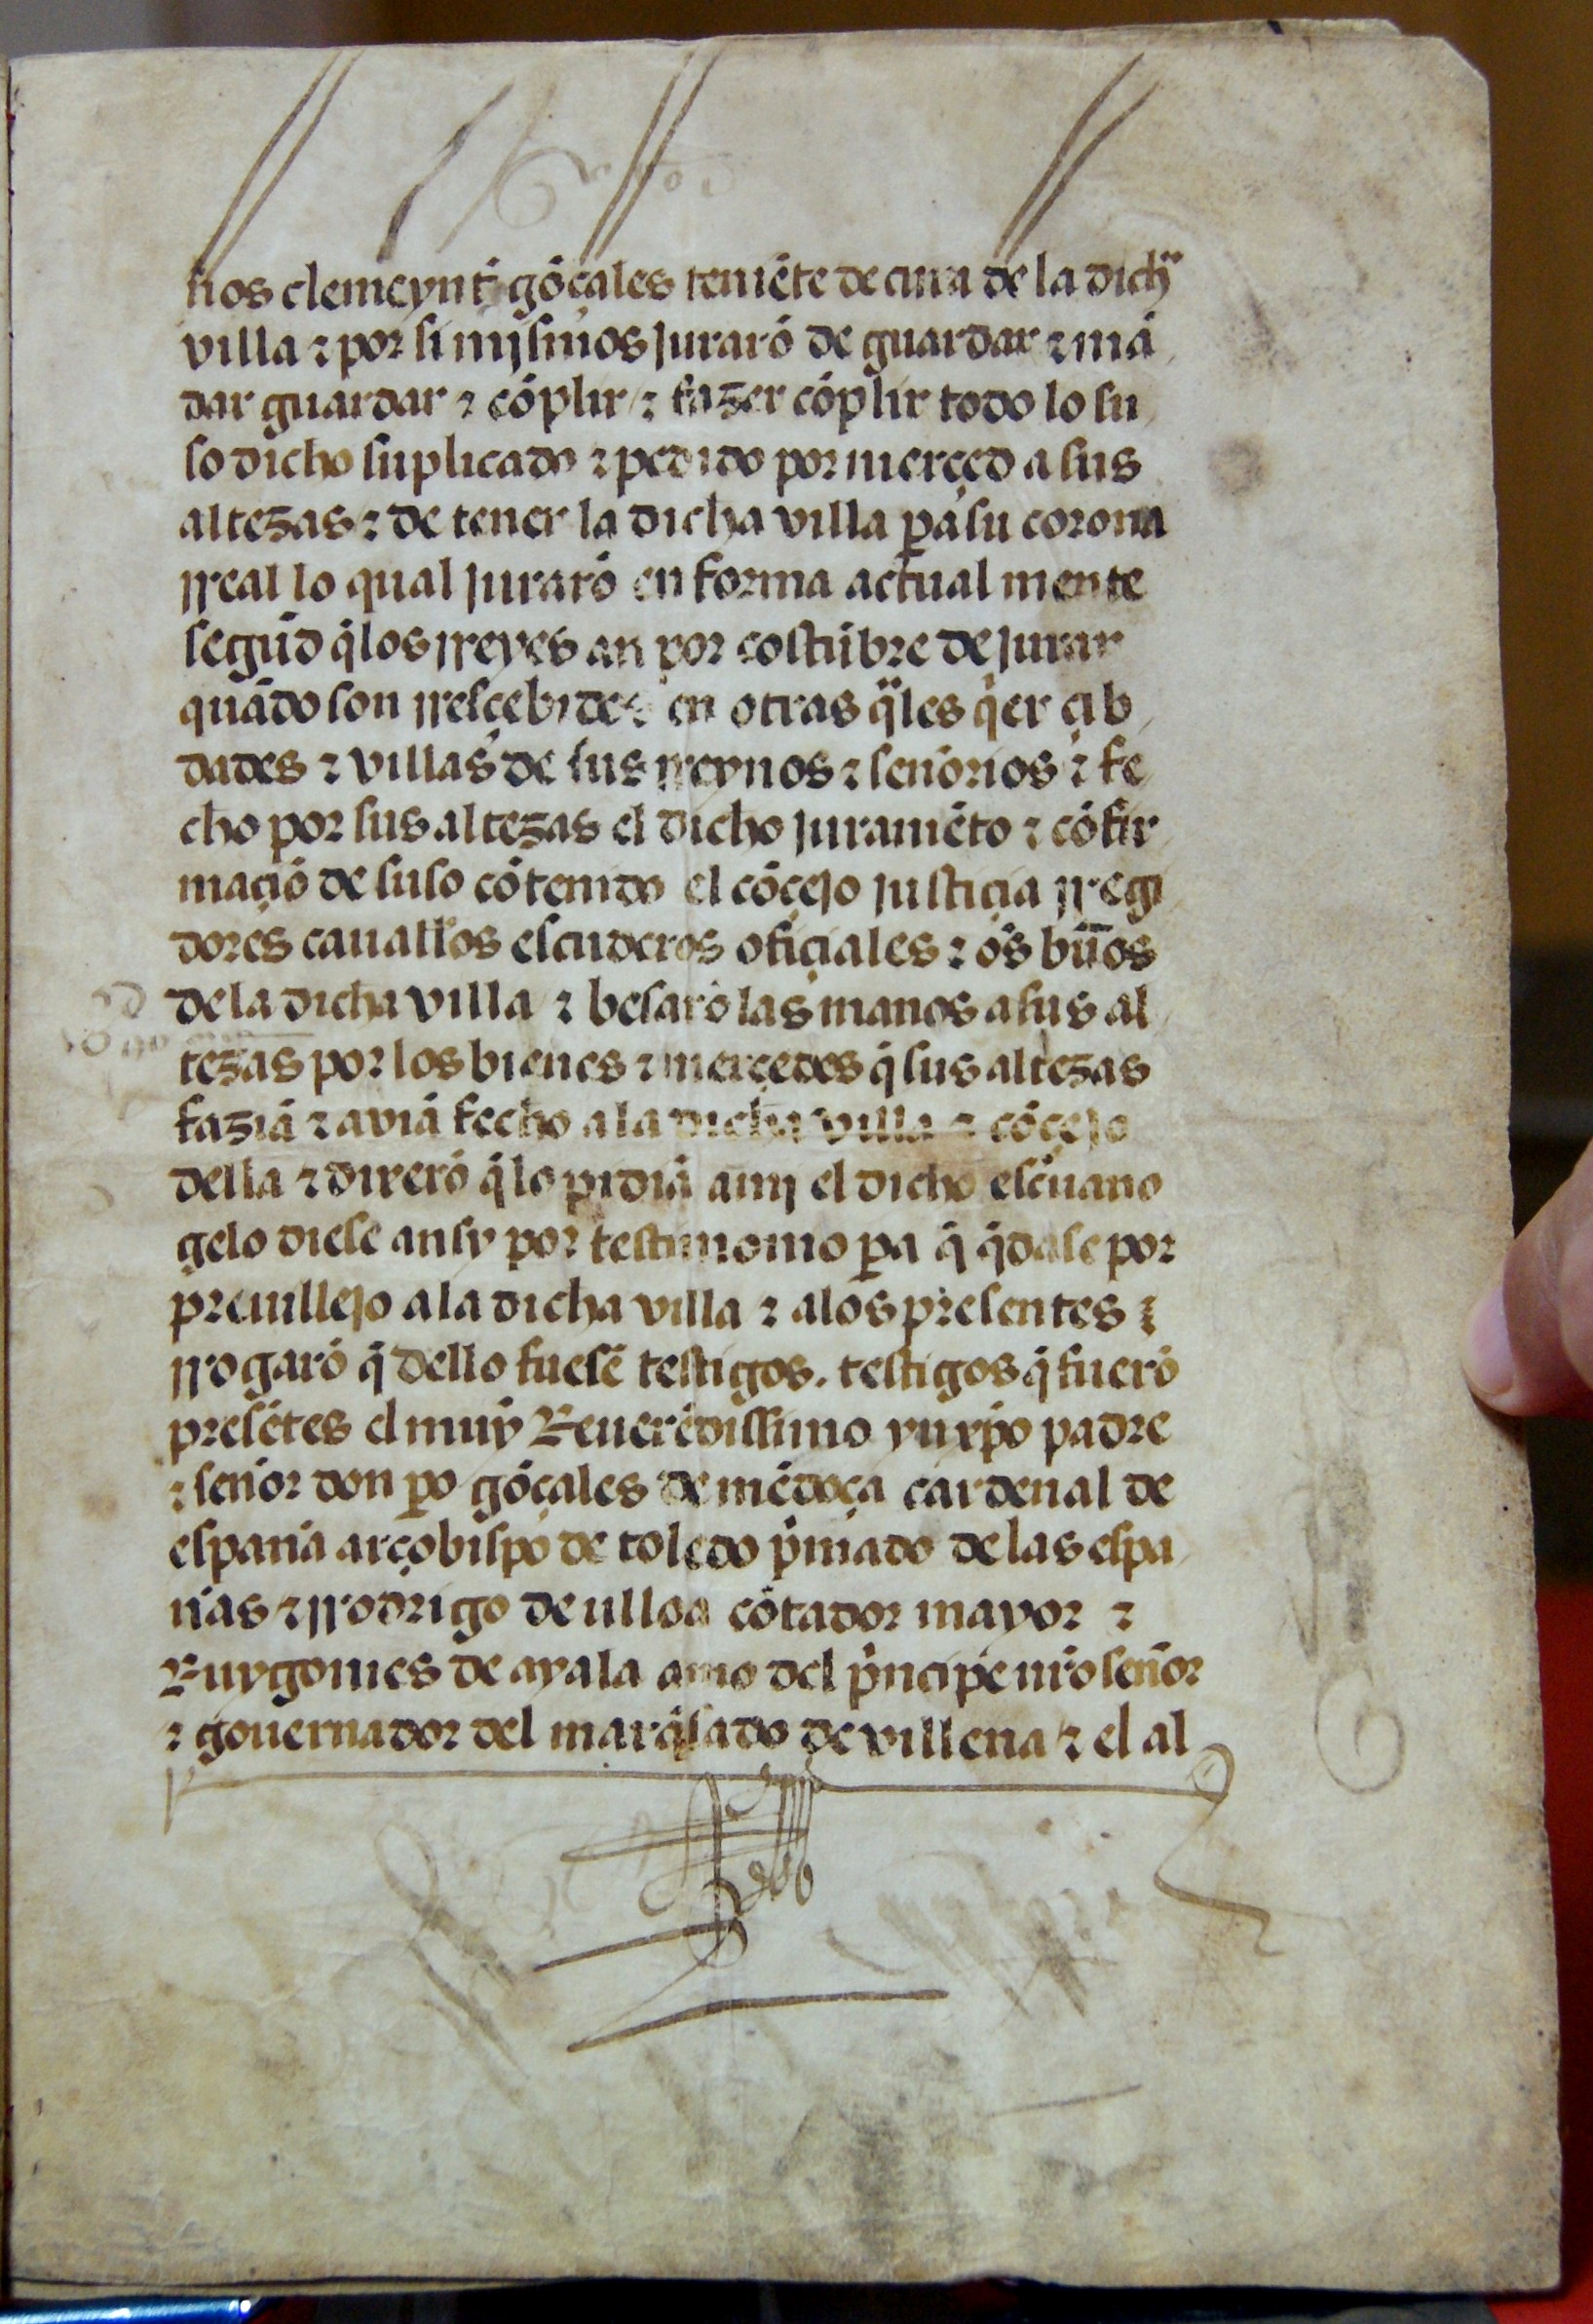 nos clemeynt gōçales teniēte de cura de la dichª
villa ⁊ por si mjsmos jurarō de guardar ⁊ mā
dar guardar ⁊ cōplir ⁊ fazer cōplir todo lo su
so dicho suplicado ⁊ pedido por merçed a sus
altezas ⁊ de tener la dicha villa ꝑa su corona
rreal lo qual jurarō en forma actual mente
segūd q̄ los rreyes an por costūbre de jurar
quādo son rresçebidos en otras q̄les q̄er çib
dades ⁊ villas de sus rreynos ⁊ señorios ⁊ fe
cho por sus altezas el dicho juramēto ⁊ cōfir
maçiō de suso cōtenido el cōçejo justiçia rregi
dores cauall̄os escuderos ofiçiales ⁊ ōs būos
de la dicha villa ⁊ besarō las manos a sus al
tezas por los bienes ⁊ merçedes q̄ sus altezas
faziā ⁊ aviā fecho a la dicha villa ⁊ cōçejo
della ⁊ dixerō q̄ lo pidiā a mj el dicho escũano
gelo diese ansy por testimonio ꝑa q̄ q̄dase por
preuillejo a la dicha villa ⁊ a los presentes ⁊
rrogarō q̄ dello fuesē testigos. testigos q̄ fuerō
presētes el muy Reuerēdissimo yn xp̄o padre
⁊ señor don p̄o gōçales de mēdoça cardenal de
españa arçobispo de toledo p̄mado de las espa
ñas ⁊ rrodrigo de ulloa cōtador mayor ⁊
Ruygomes de ayala amo del p̄ncipe nr̄o señor
⁊ gouernador del marq̄sado de villena ⁊ el al